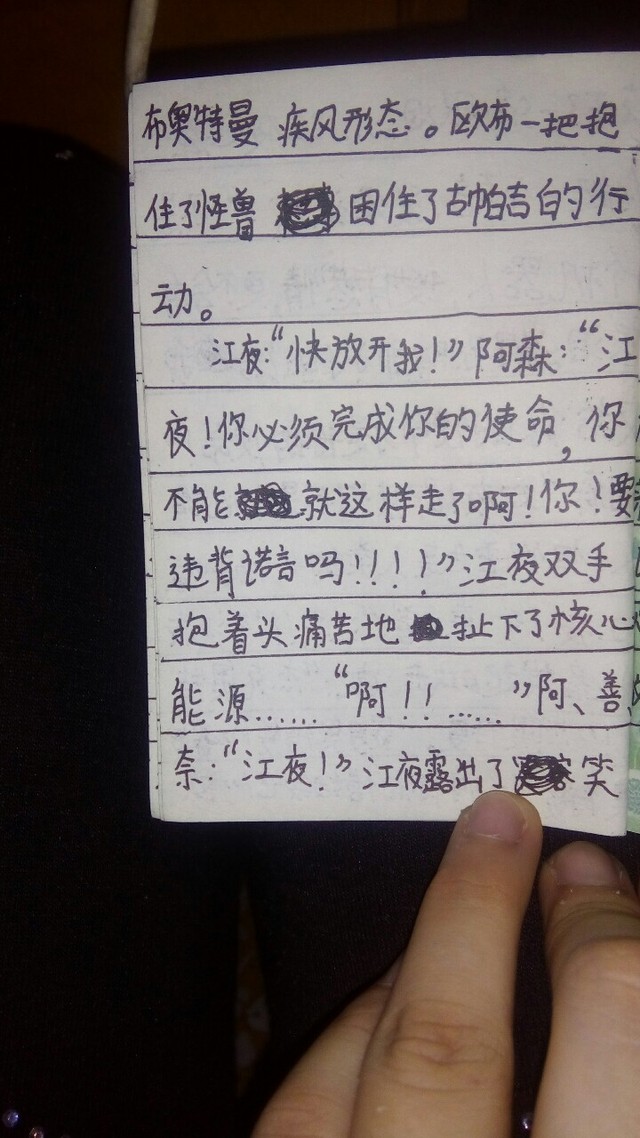 布奥特曼 疾风形态。欧布一把抱
住了怪兽 困住了古帕吉白的行
动。
江夜:“快放开我!”阿森:“江
夜!你必须完成你的使命,你
不能 就这样走了啊!你!要
违背诺言吗!!!!”江夜双手
抱着头痛苦地 扯下了核心
能源……“啊!!……”阿、善
奈:“江夜!”江夜露出了 笑